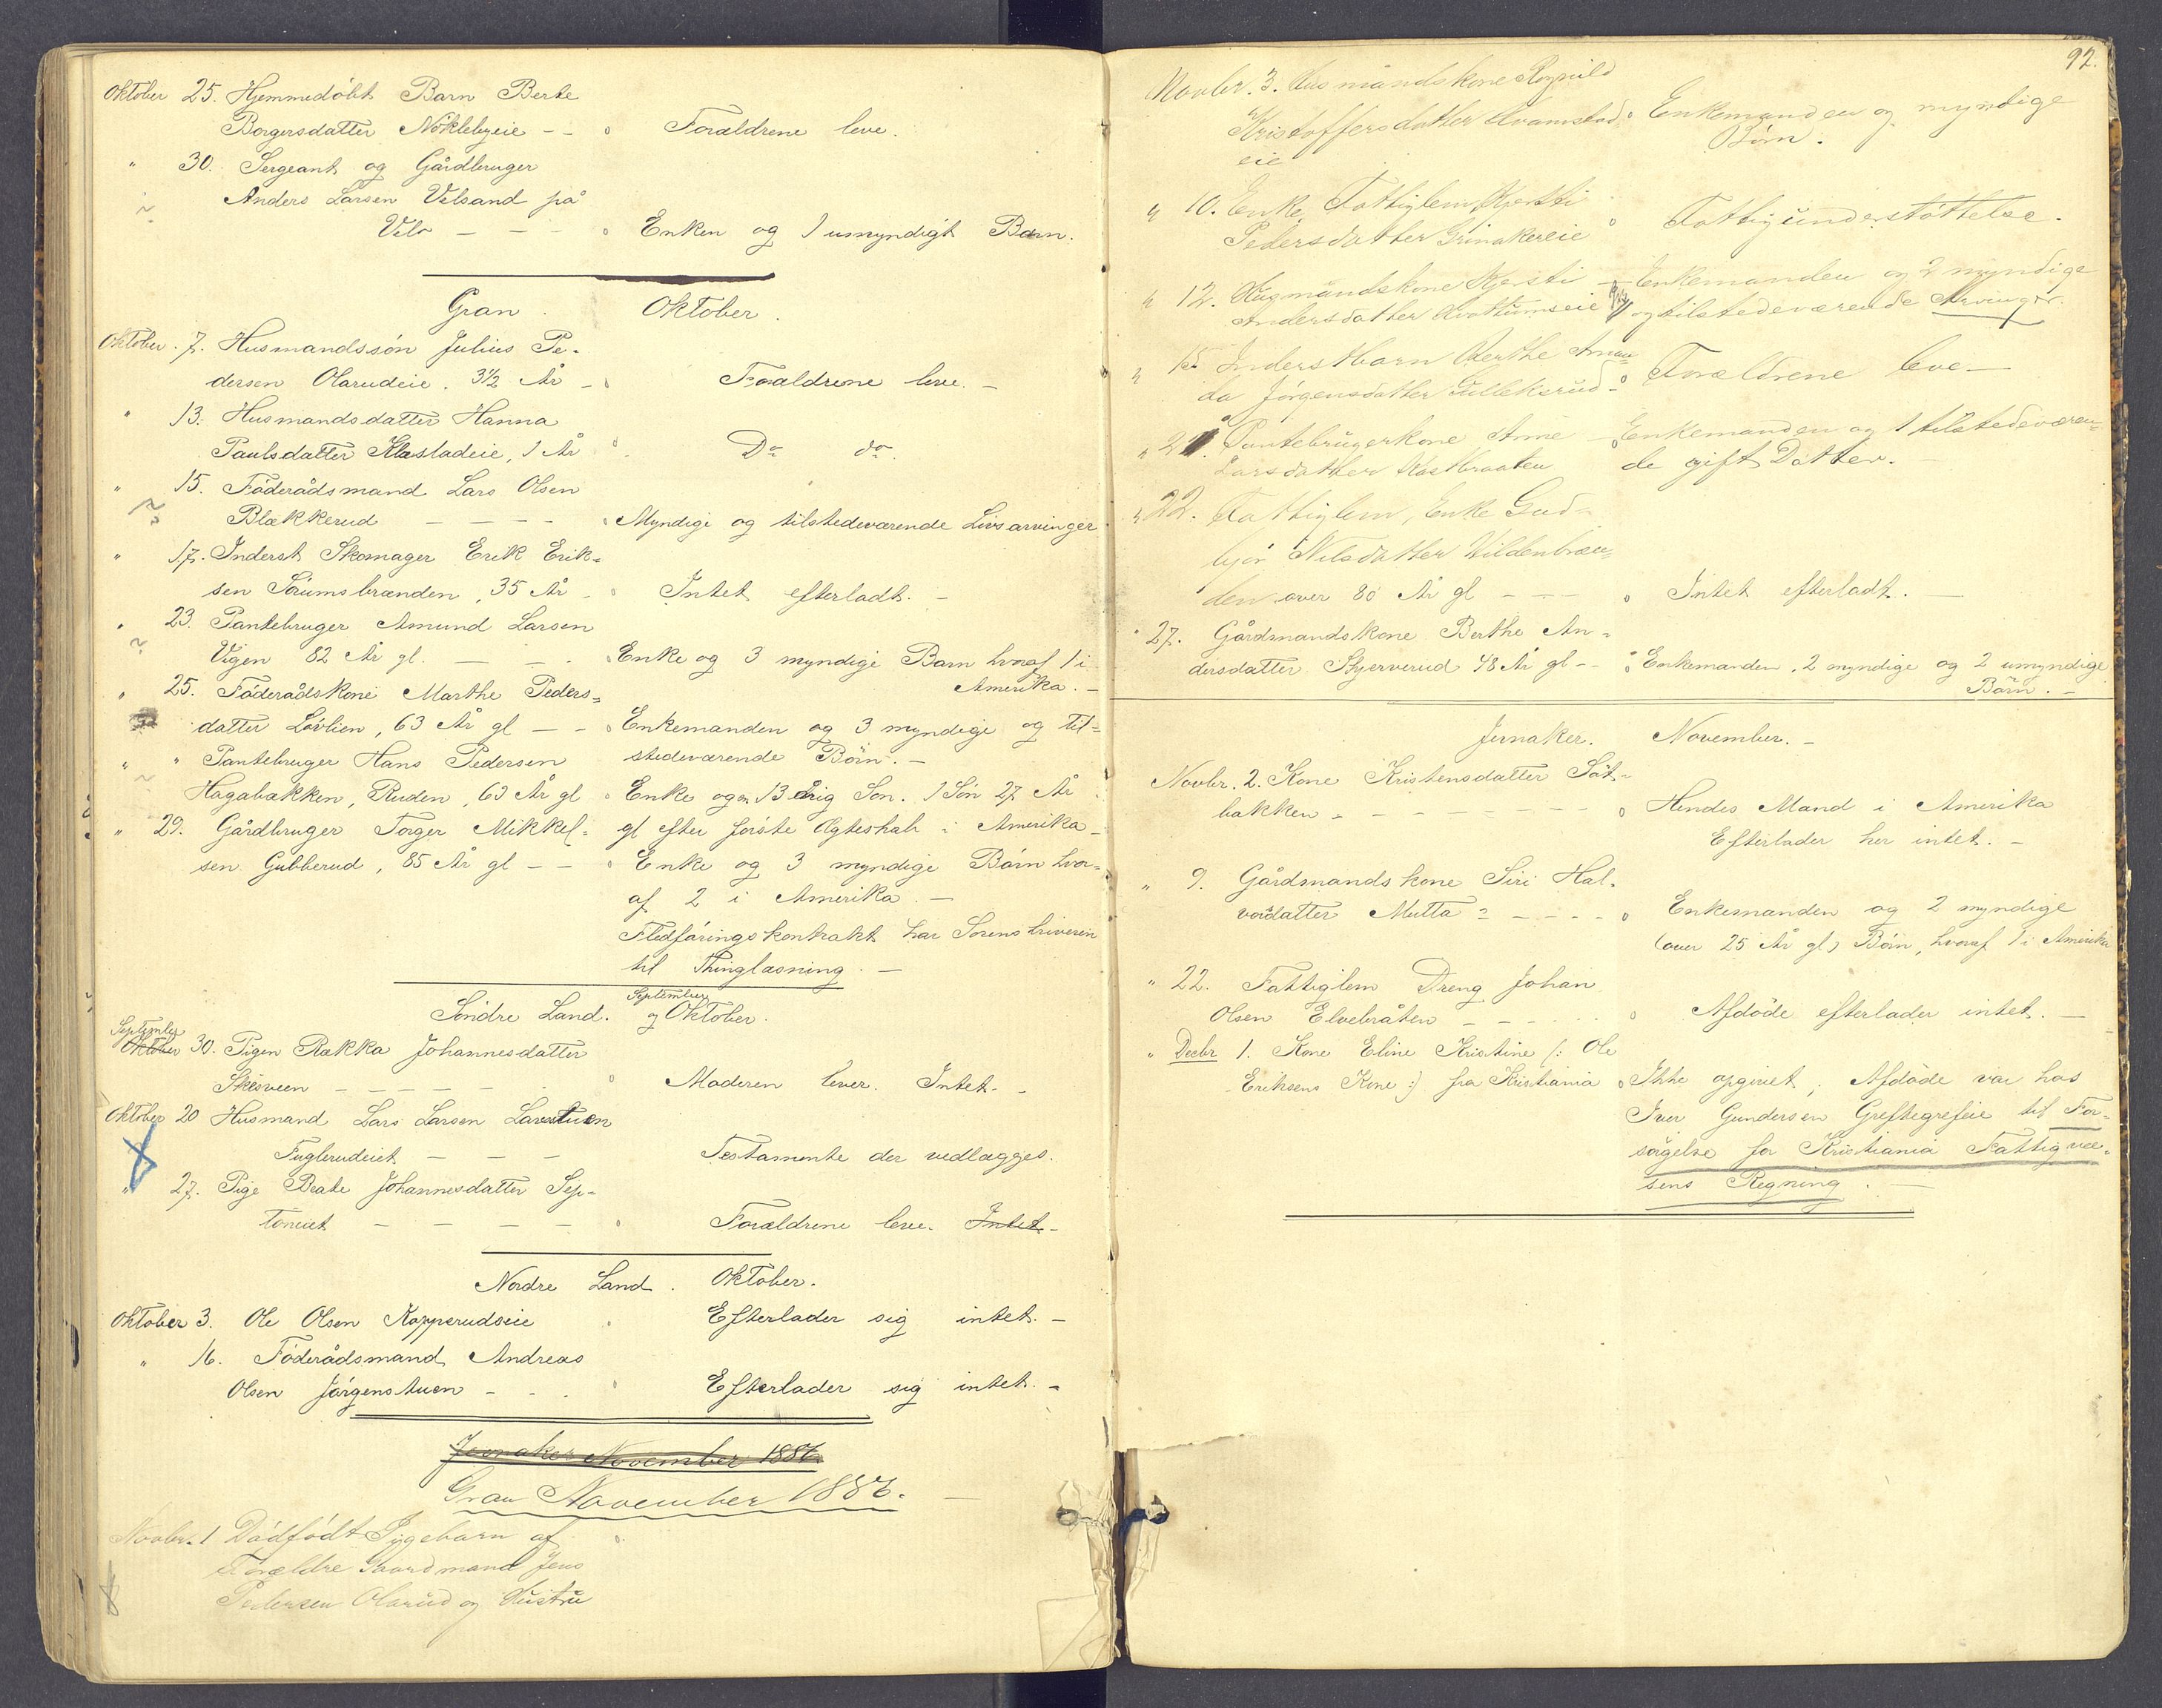 Oktober 25. Hjemmedöbt Barn Berte
Borgersdatter Nöklebyeie - - " Forældrene leve.
" 30. Sergeant og Gårdbruger
Anders Larsen Velsand på
Velo - - - " Enken og 1 umyndigt Barn.
Gran. Oktober.
Oktober. 7. Husmandssön Julius Pe-
dersen Olarudeie. 3½ År - Forældrene leve. -
" 13. Husmandsdatter Hanna
Paulsdatter Klæstadeie, 1 År " Do do.
" 15. Föderådsmand Lars Olsen
Blækkerud - - - - " Myndige og tilstedeværende Livsarvinger
" 17. Inderst Skomager Erik Erik-
sen Sörumsbrænden, 35 År - " Intet efterladt. -
" 23. Pantebruger Amund Larsen
Vigen 82 År gl. - - - " Enke og 3 myndige Barn hvoraf 1 i
Amerika. -
" 25. Föderådskone Marthe Peders-
datter Lövlien, 63 År gl - - " Enkemanden og 3 myndige og til-
stedeværende Börn. -
" " Pantebruger Hans Pedersen
Hagabakken, Ruden, 63 År gl " Enke og en 13 årig Sön. 1 Sön 27 År
gl efter förste Ægteskab i Amerika -
" 29. Gårdbruger Torger Mikkel-
sen Gubberud, 85 År gl - - " Enke og 3 myndige Börn hvor-
af 2 i Amerika. -
Fledföringskontrakt har Sorenskriveren
til Thinglæsning. -
Söndre Land. September og Oktober.
September Oktober 30. Pigen Rakka Johannesdatter
Skesveen - - - - - " Moderen lever. Intet -
Oktober 20 Husmand Lars Larsen Larstuen
Fuglerudeiet - - - Testamente der vedlægges.
" 27. Pige Beate Johannesdatter Sep-
toneiet - - - - " Forældrene leve. Intet -
Nordre Land. Oktober.
Oktober 3. Ole Olsen Kopperudseie " Efterlader sig intet. -
" 16. Föderådsmand Andreas
Olsen Jörgenstuen - - - " Efterlader sig intet. -
Jevnaker November 1886.
Gran November 1886. -
Novbr. 1 Dödfödt Pigebarn af "
Forældre Gaardmand Jens
Pedersen Olarud og Hustru
92.
Novbr. 3. Husmandskone Ragnild
Kristoffersdatter Hvamstad- " Enkemanden og myndige
eie Börn.
" 10. Enke, Fattiglem Kjersti
Pedersdatter Grinakereie " Fattigunderstöttelse.
" 12. Husmandskone Kjersti - Enkemanden og 2 myndige
Andersdatter Hvattumseie og tilstedeværende Arvinger.
" 15 Inderstbarn Berthe Aman-
da Jörgensdatter Gulleksrud - " Forældrene leve -
" 21. Pantebrugerkone Anne - Enkemanden og 1 tilstedeværen-
Larsdatter Kastbraaten de gift Datter. -
" 22. Fattiglem, Enke Gud-
björ Nilsdatter Hildenbræn-
den over 80 År gl - - - " Intet efterladt. -
" 27. Gårdmandskone Berthe An-
dersdatter Skjerverud 48 År gl - - " Enkemanden, 2 myndige og 2 umyndige
Börn. -
Jevnaker. November. -
Novbr. 2. Kone Kristensdatter Söt-
bakken - - - - - - " Hendes Mand i Amerika
Efterlader her intet. -
" 9. Gårdmandskone Siri Hal-
vorsdatter Mutta - - - - " Enkemanden og 2 myndige
(over 25 År gl) Börn, hvoraf 1 i Amerika
" 22. Fattiglem Dreng Johan
Olsen Elvebråten - - - - " Afdöde efterlader intet. -
" Decbr 1. Kone Eline Kristine (: Ole
Eriksens Kone :) fra Kristiania " Ikke opgivet; Afdöde var hos
Iver Gundersen Greftegrefeie til For-
sörgelse for Kristiania Fattigvæ-
sens Regning. -